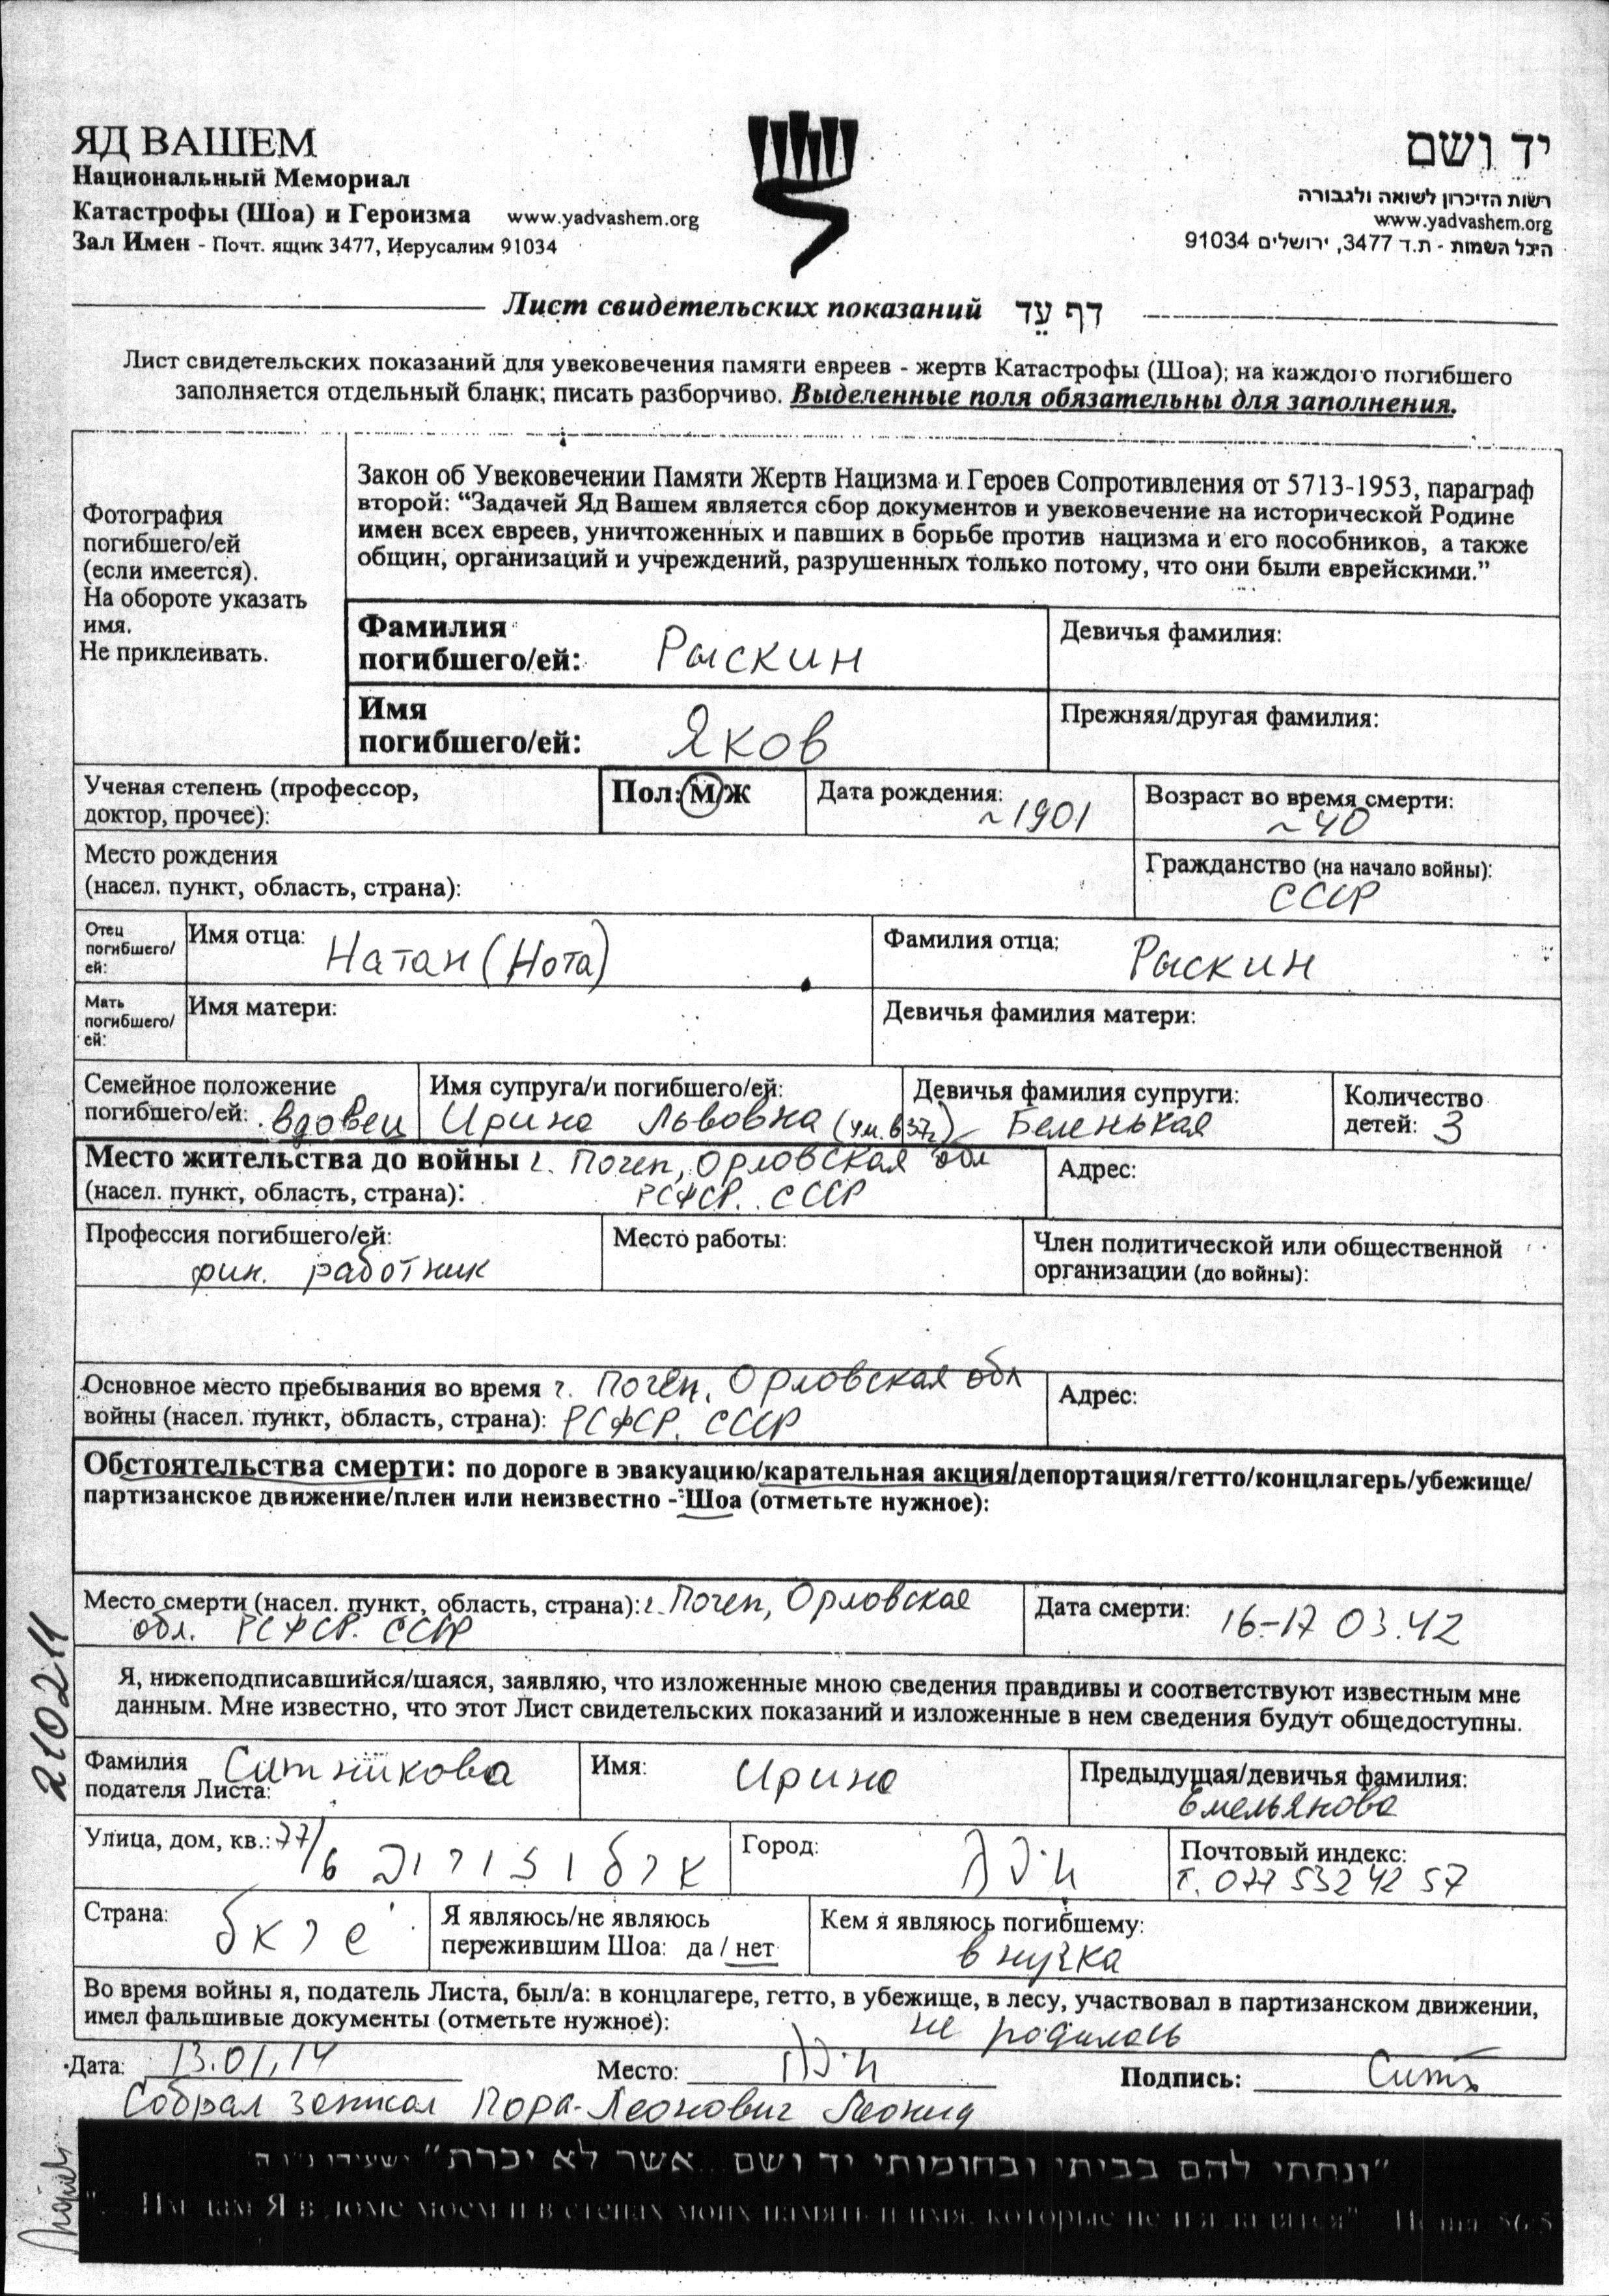 ЯД ВАШЕМ
Национальный Мемориал
Катастрофы (Шоа) и Героизма www.yadvashem.org
Зал Имен - Почт. ящик 3477, Иерусалим 91034
יד ושם
רשות הזיכרון לשואה ולגבורה
www.yadvashem.org
היכל השמות - ת.ד 3477, ירושלים 91034
Лист свидетельских показаний דף עֵד
Лист свидетельских показаний для увековечения памяти евреев - жертв Катастрофы (Шоа); на каждого погибшего
заполняется отдельный бланк; писать разборчиво. Выделенные поля обязательны для заполнения.
Фотография
погибшего/ей
(если имеется).
На обороте указать
имя.
Не приклеивать.
Закон об Увековечении Памяти Жертв Нацизма и Героев Сопротивления от 5713-1953, параграф
второй: “Задачей Яд Вашем является сбор документов и увековечение на исторической Родине
имен всех евреев, уничтоженных и павших в борьбе против нацизма и его пособников, а также
общин, организаций и учреждений, разрушенных только потому, что они были еврейскими.”
Фамилия
погибшего/ей: Рыскин
Девичья фамилия:
Имя
погибшего/ей: Яков
Прежняя/другая фамилия:
Ученая степень (профессор,
доктор, прочее):
Пол: М/Ж
Дата рождения:
~1901
Возраст во время смерти:
~40
Место рождения
(насел. пункт, область, страна):
Гражданство (на начало войны):
СССР
Отец
погибшего/
ей:
Имя отца: Натан (Нота)
Фамилия отца: Рыскин
Мать
погибшего/
ей:
Имя матери:
Девичья фамилия матери:
Семейное положение
погибшего/ей: вдовец
Имя супруга/и погибшего/ей:
Ирина Львовна (ум. в 37г.)
Девичья фамилия супруги:
Беленькая
Количество
детей: 3
Место жительства до войны г. Почеп, Орловская обл
(насел. пункт, область, страна): РСФСР. СССР
Адрес:
Профессия погибшего/ей:
фин. работник
Место работы:
Член политической или общественной
организации (до войны):
Основное место пребывания во время г. Почеп, Орловская обл
войны (насел. пункт, область, страна): РСФСР. СССР
Адрес:
Обстоятельства смерти: по дороге в эвакуацию/карательная акция/депортация/гетто/концлагерь/убежище/
партизанское движение/плен или неизвестно - Шоа (отметьте нужное):
Место смерти (насел. пункт, область, страна): г. Почеп, Орловская
обл. РСФСР. СССР
Дата смерти: 16-17 03.42
Я, нижеподписавшийся/шаяся, заявляю, что изложенные мною сведения правдивы и соответствуют известным мне
данным. Мне известно, что этот Лист свидетельских показаний и изложенные в нем сведения будут общедоступны.
Фамилия
подателя Листа: Ситникова
Имя: Ирина
Предыдущая/девичья фамилия:
Емельянова
Улица, дом, кв.: 77/6
Город:
Почтовый индекс:
т. 077 532 42 57
Страна:
Я являюсь/не являюсь
пережившим Шоа: да / нет
Кем я являюсь погибшему:
внучка
Во время войны я, податель Листа, был/а: в концлагере, гетто, в убежище, в лесу, участвовал в партизанском движении,
имел фальшивые документы (отметьте нужное): не родилась
Дата: 13.01.14
Место:
Подпись: Ситн
Собрал записал Пора-Леонович Леонид
210211
"ונתתי להם בביתי ובחומותי יד ושם... אשר לא יכרת" ישעיהו נ"ו ה'
"...Им дам Я в доме моем и в стенах моих память и имя, которые не изгладятся" Исайя, 56:5